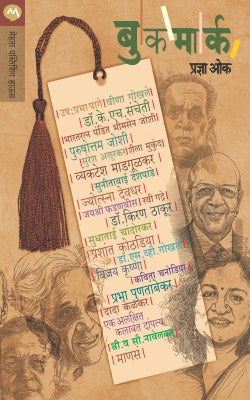 मेहता पब्लिशिंग हाऊस
बुकमार्क
प्रज्ञा ओक
।उषःप्रभा पागे।वीणा गोखले।
।डॉ.के.एच.संचेती।
।भारतरत्न पंडित भीमसेन जोशी।
।पुरुषोत्तम जोशी।
।सुरेश अलुरकर।शैला मुकुंद।
।व्यंकटेश माडगूळकर।
।सुनीताबाई देशपांडे।
।ज्योत्स्ना देवधर।
।जयश्री फडणवीस।रवी गद्रे।
।डॉ.किरण ठाकूर।
।सुधाताई चांदोरकर।
।प्रशांत कोठडिया।
।डॉ.एस.व्ही.गोखले।
।विजय कृष्णा।
।कविता चनोडिया।
।प्रभा पुणतांबेकर।
।दादा केळकर।
।एक अलक्षित
कलावंत दांपत्य।
।श्री.व सौ.नावेलकर।
।माणसं।